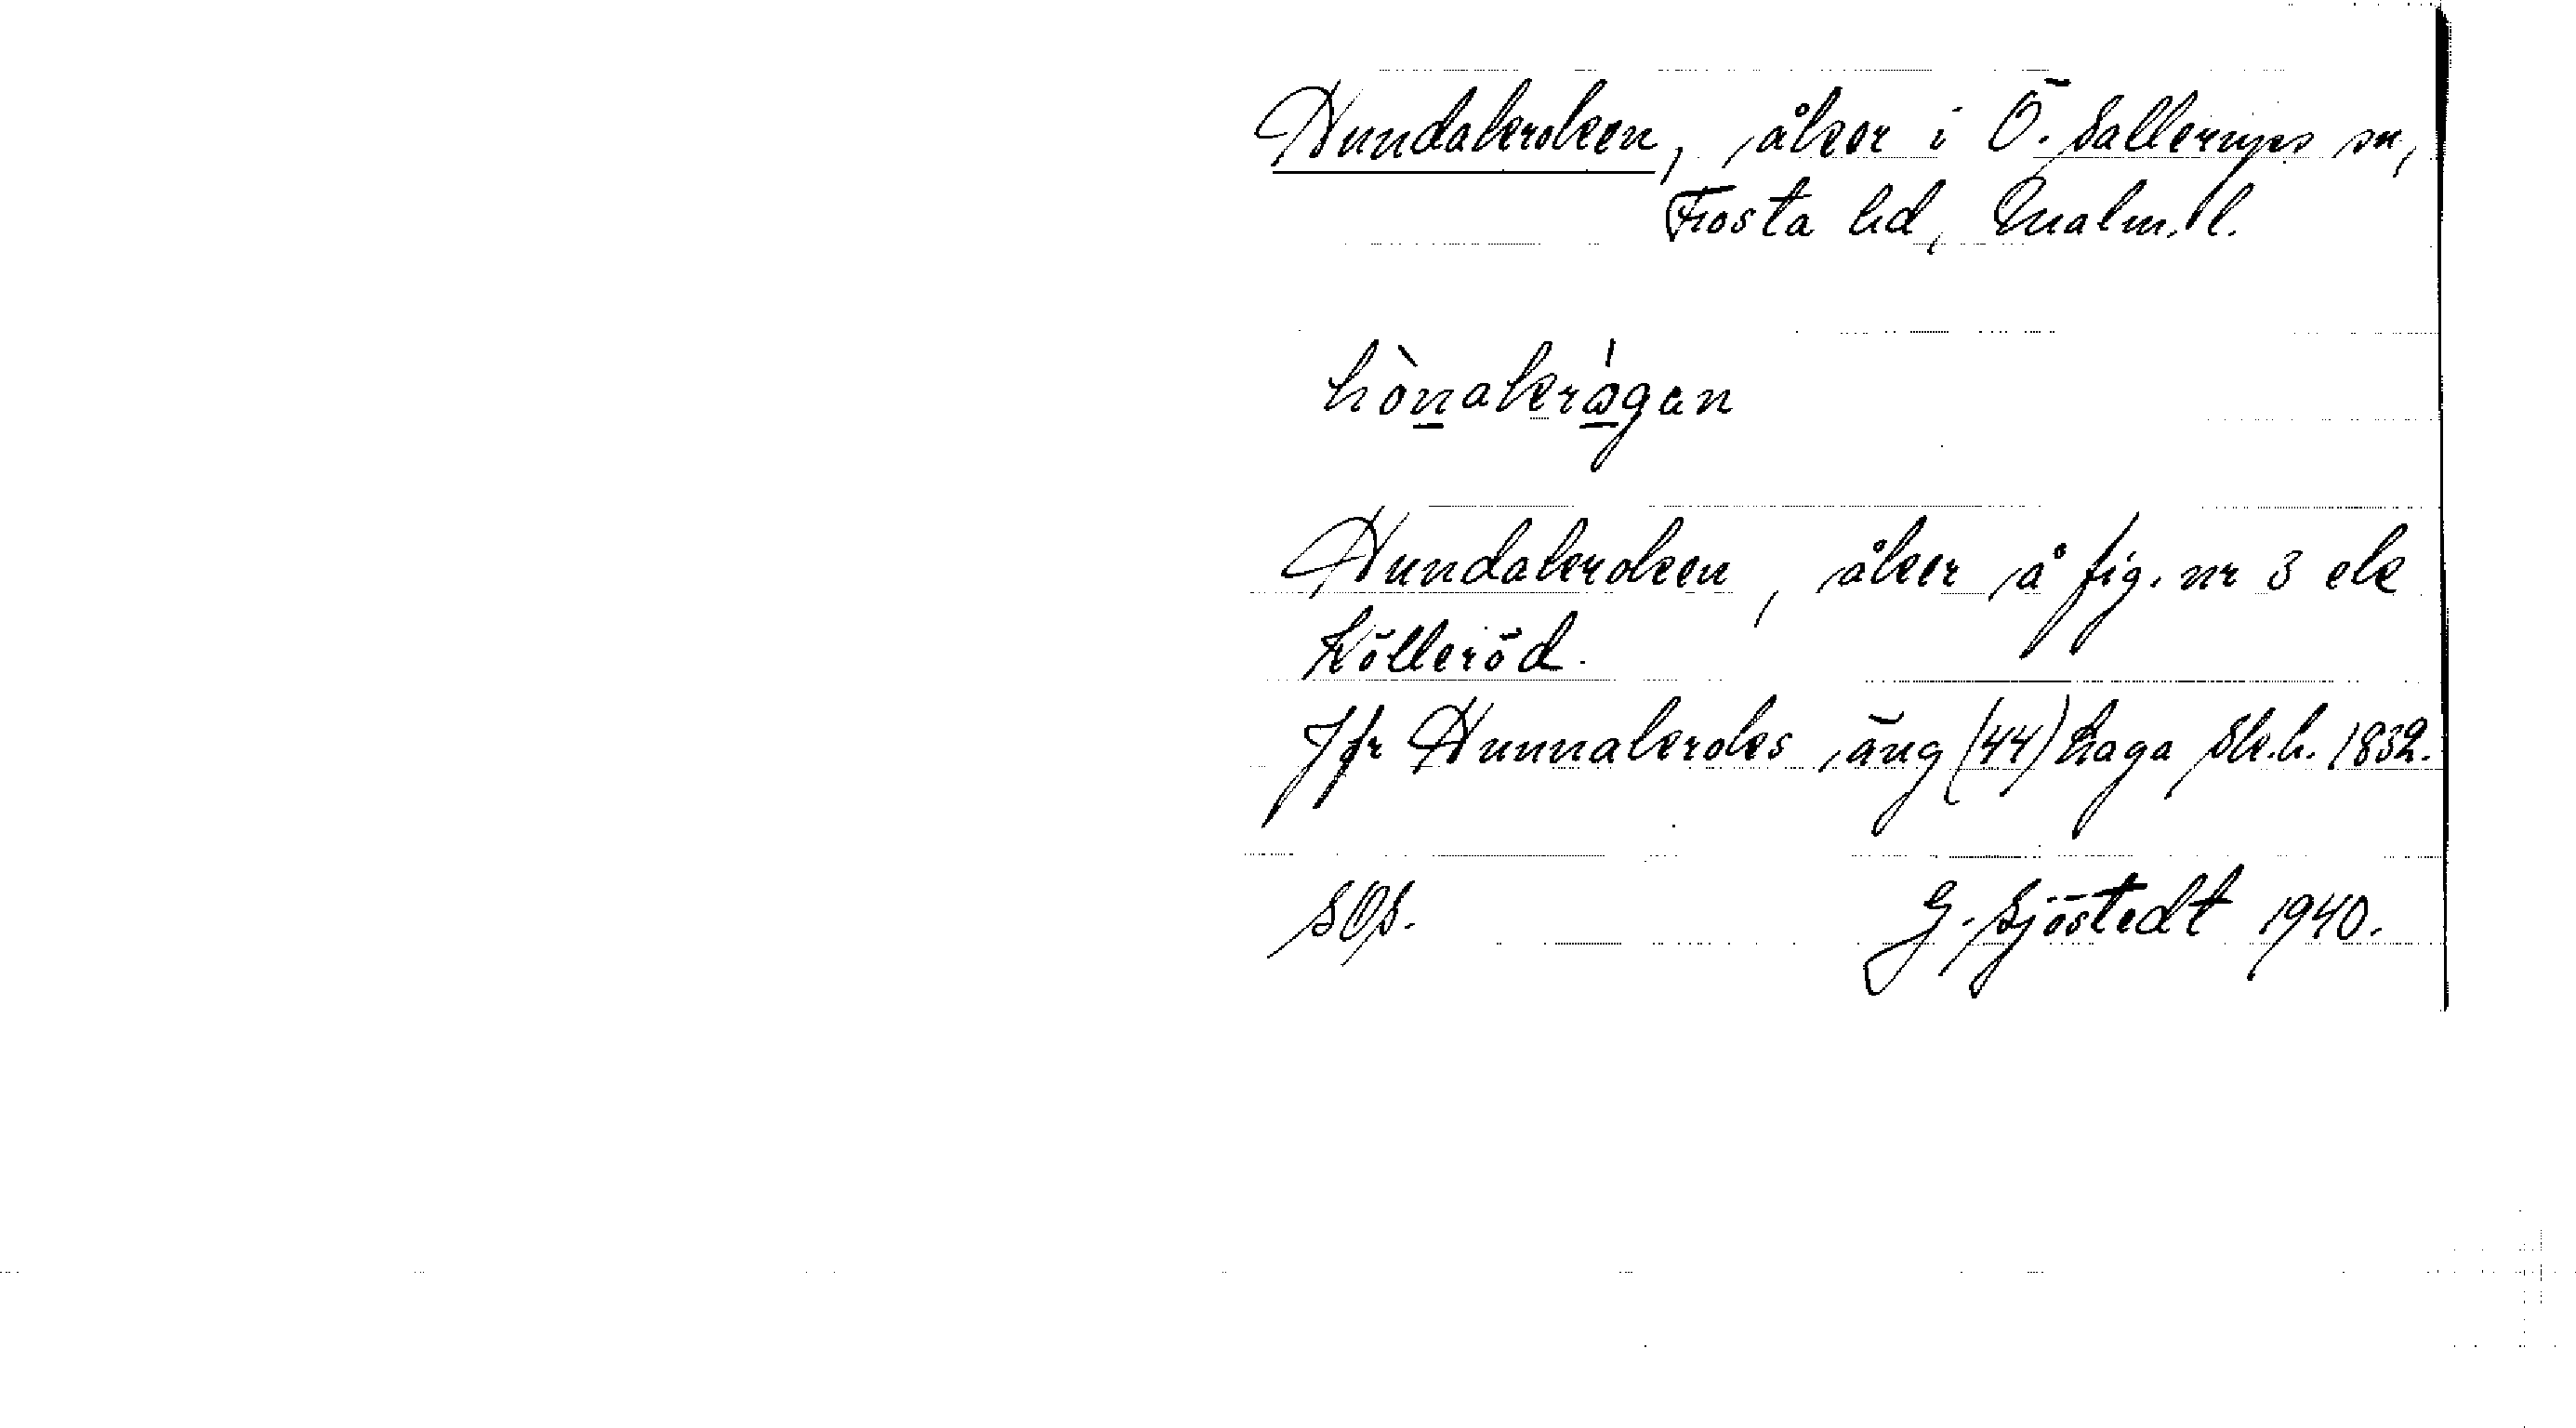 Hundakroken, åker i Ö. Sallerups sn,
Frosta hd, Malm. l.
hònakrågan
Hundakroken, åker å fig. nr 3 ek
Kölleröd.
Jfr Hunnakroks äng (44) Haga Sk.h. 1832.
SOS. G. Sjöstedt 1940.